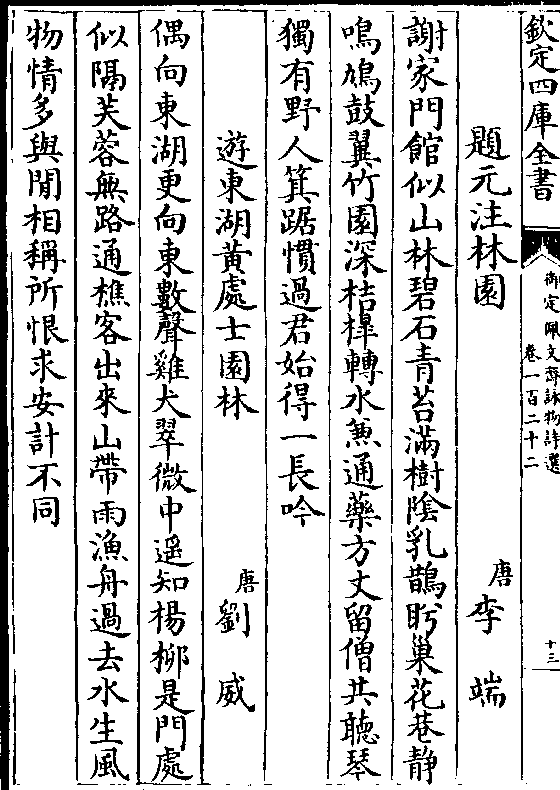 欽定四庫全書
御定佩文齋詠物詩選
卷一百二十二
十三
題元注林園
唐李端
謝家門館似山林碧石青苔滿樹陰乳鵲眄巢花巷静
鳴鳩鼓翼竹園深桔橰轉水兼通藥方丈留僧共聽琴
獨有野人箕踞慣過君始得一長吟
遊東湖黄處士園林
唐劉威
偶向東湖更向東數聲雞犬翠微中遥知楊柳是門處
似隔芙蓉無路通樵客出來山帶雨漁舟過去水生風
物情多與閒相稱所恨求安計不同